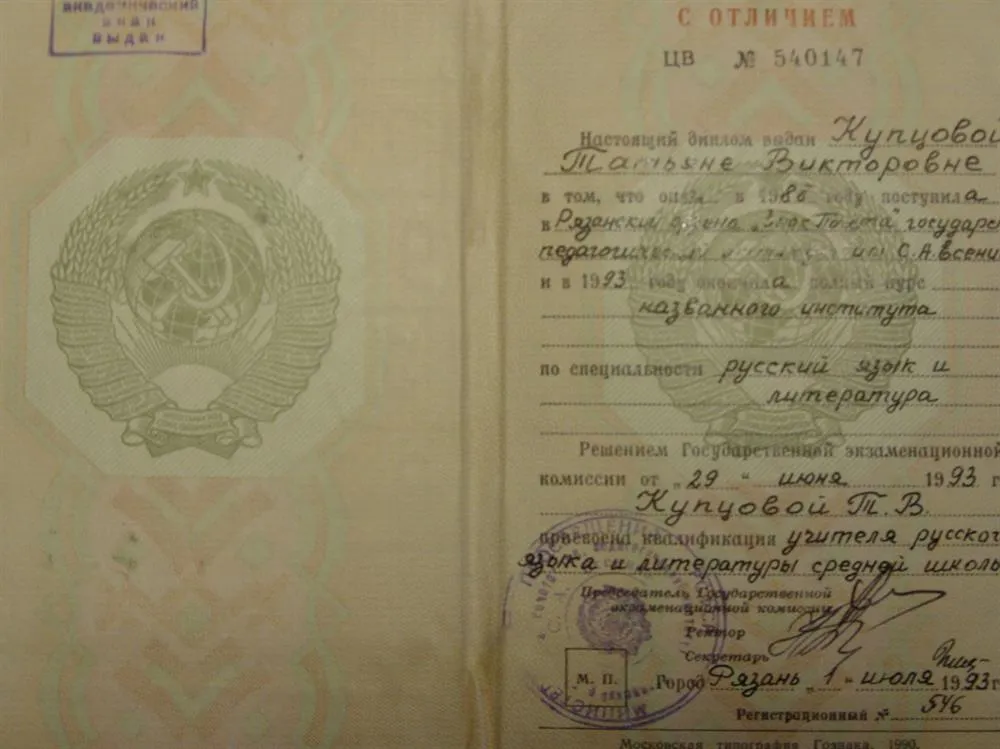 академический
знак
выдан
С ОТЛИЧИЕМ
ЦВ № 540147
Настоящий диплом выдан Купцовой
Татьяне Викторовне
в том, что она в 1986 году поступила
в Рязанский ордена „Знак Почета" государс
педагогический институт им С.А.Есени
и в 1993 году окончила полный курс
названного института
по специальности русский язык и
литература
Решением Государственной экзаменационной
комиссии от „29" июня 1993 г
Купцовой Т.В.
присвоена квалификация учителя русског
языка и литературы средней школы
Председатель Государственной
экзаменационной комиссии
Ректор
Секретарь
М. П. Город Рязань „1" июля 1993г
Регистрационный № 546
Московская типография Гознака. 1990.